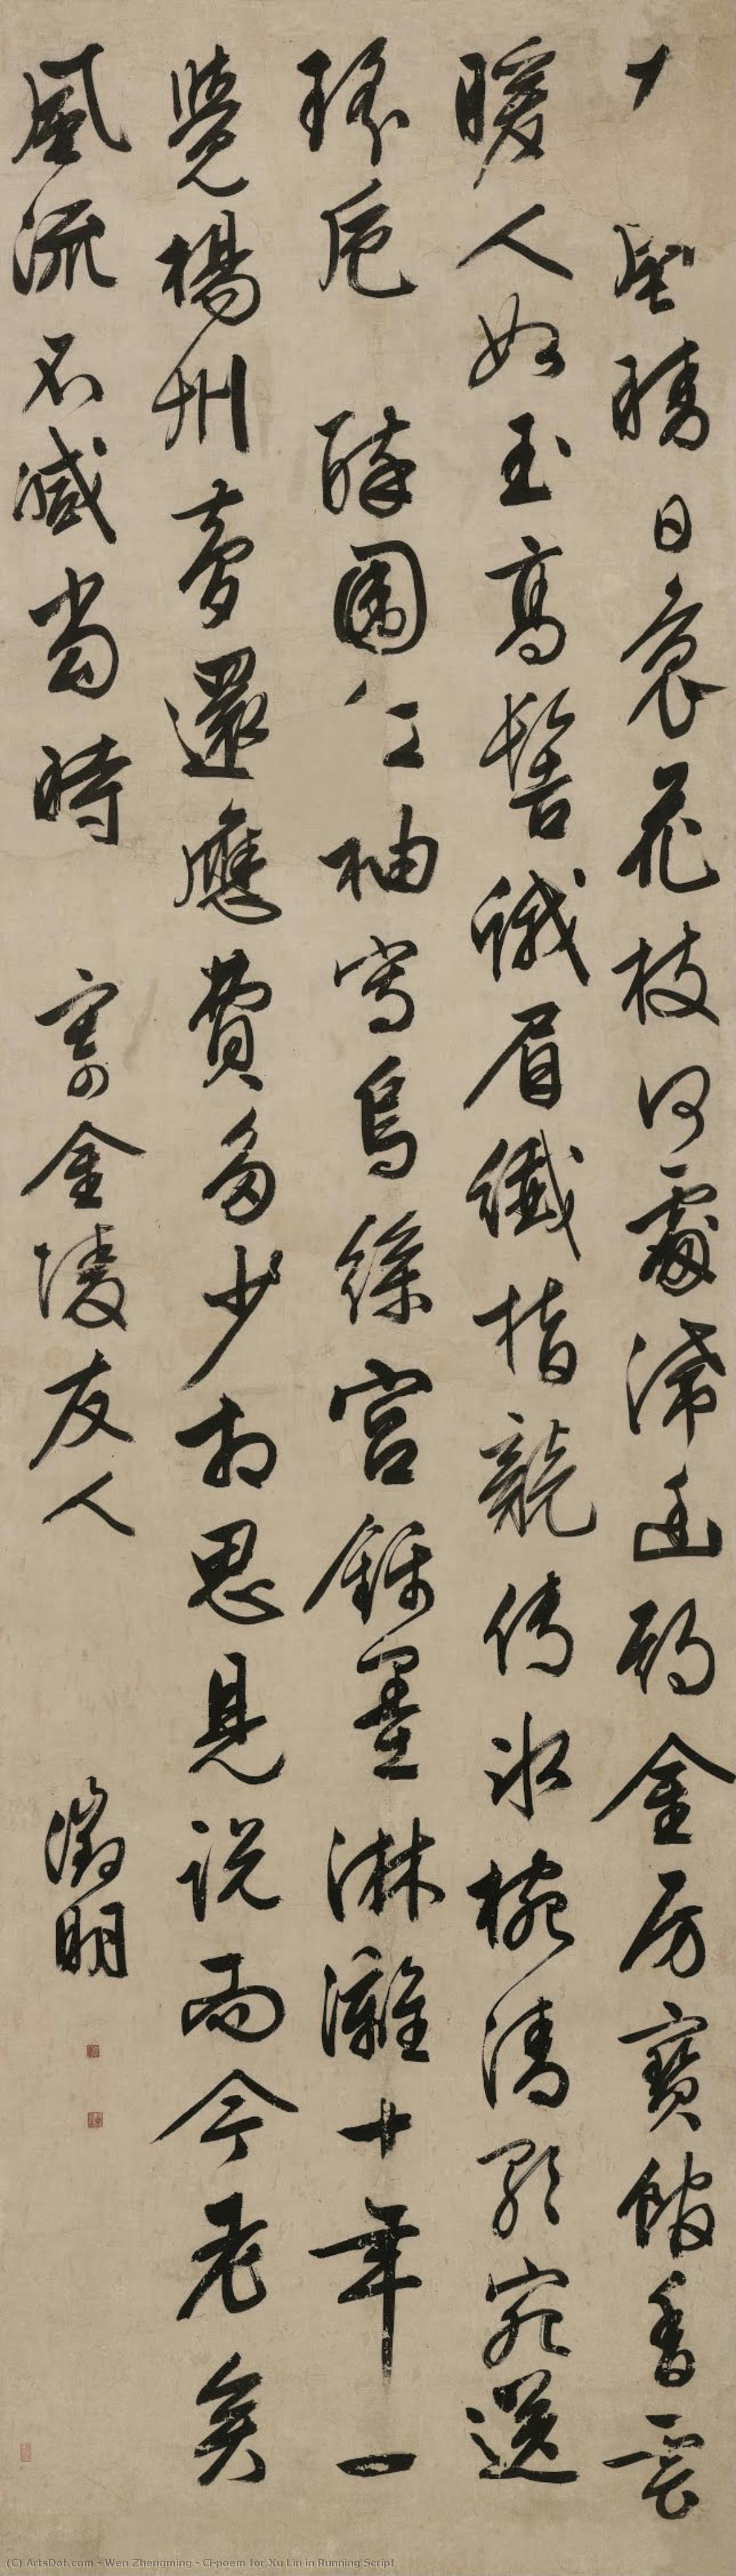 日裊花枝何處滯幽期金房寶館香雲
暖人如玉高髻蛾眉纖指競傳冰椀清歌宛送
瑤卮醉圍紅袖寫烏絲宮錦墨淋灕十年一
覺楊州夢還應費多少相思見說而今老矣
風流不減當時 寄金陵友人 徵明
(C) ArtsDot.com - Wen Zhengming - Ci-poem for Xu Lin in Running Script